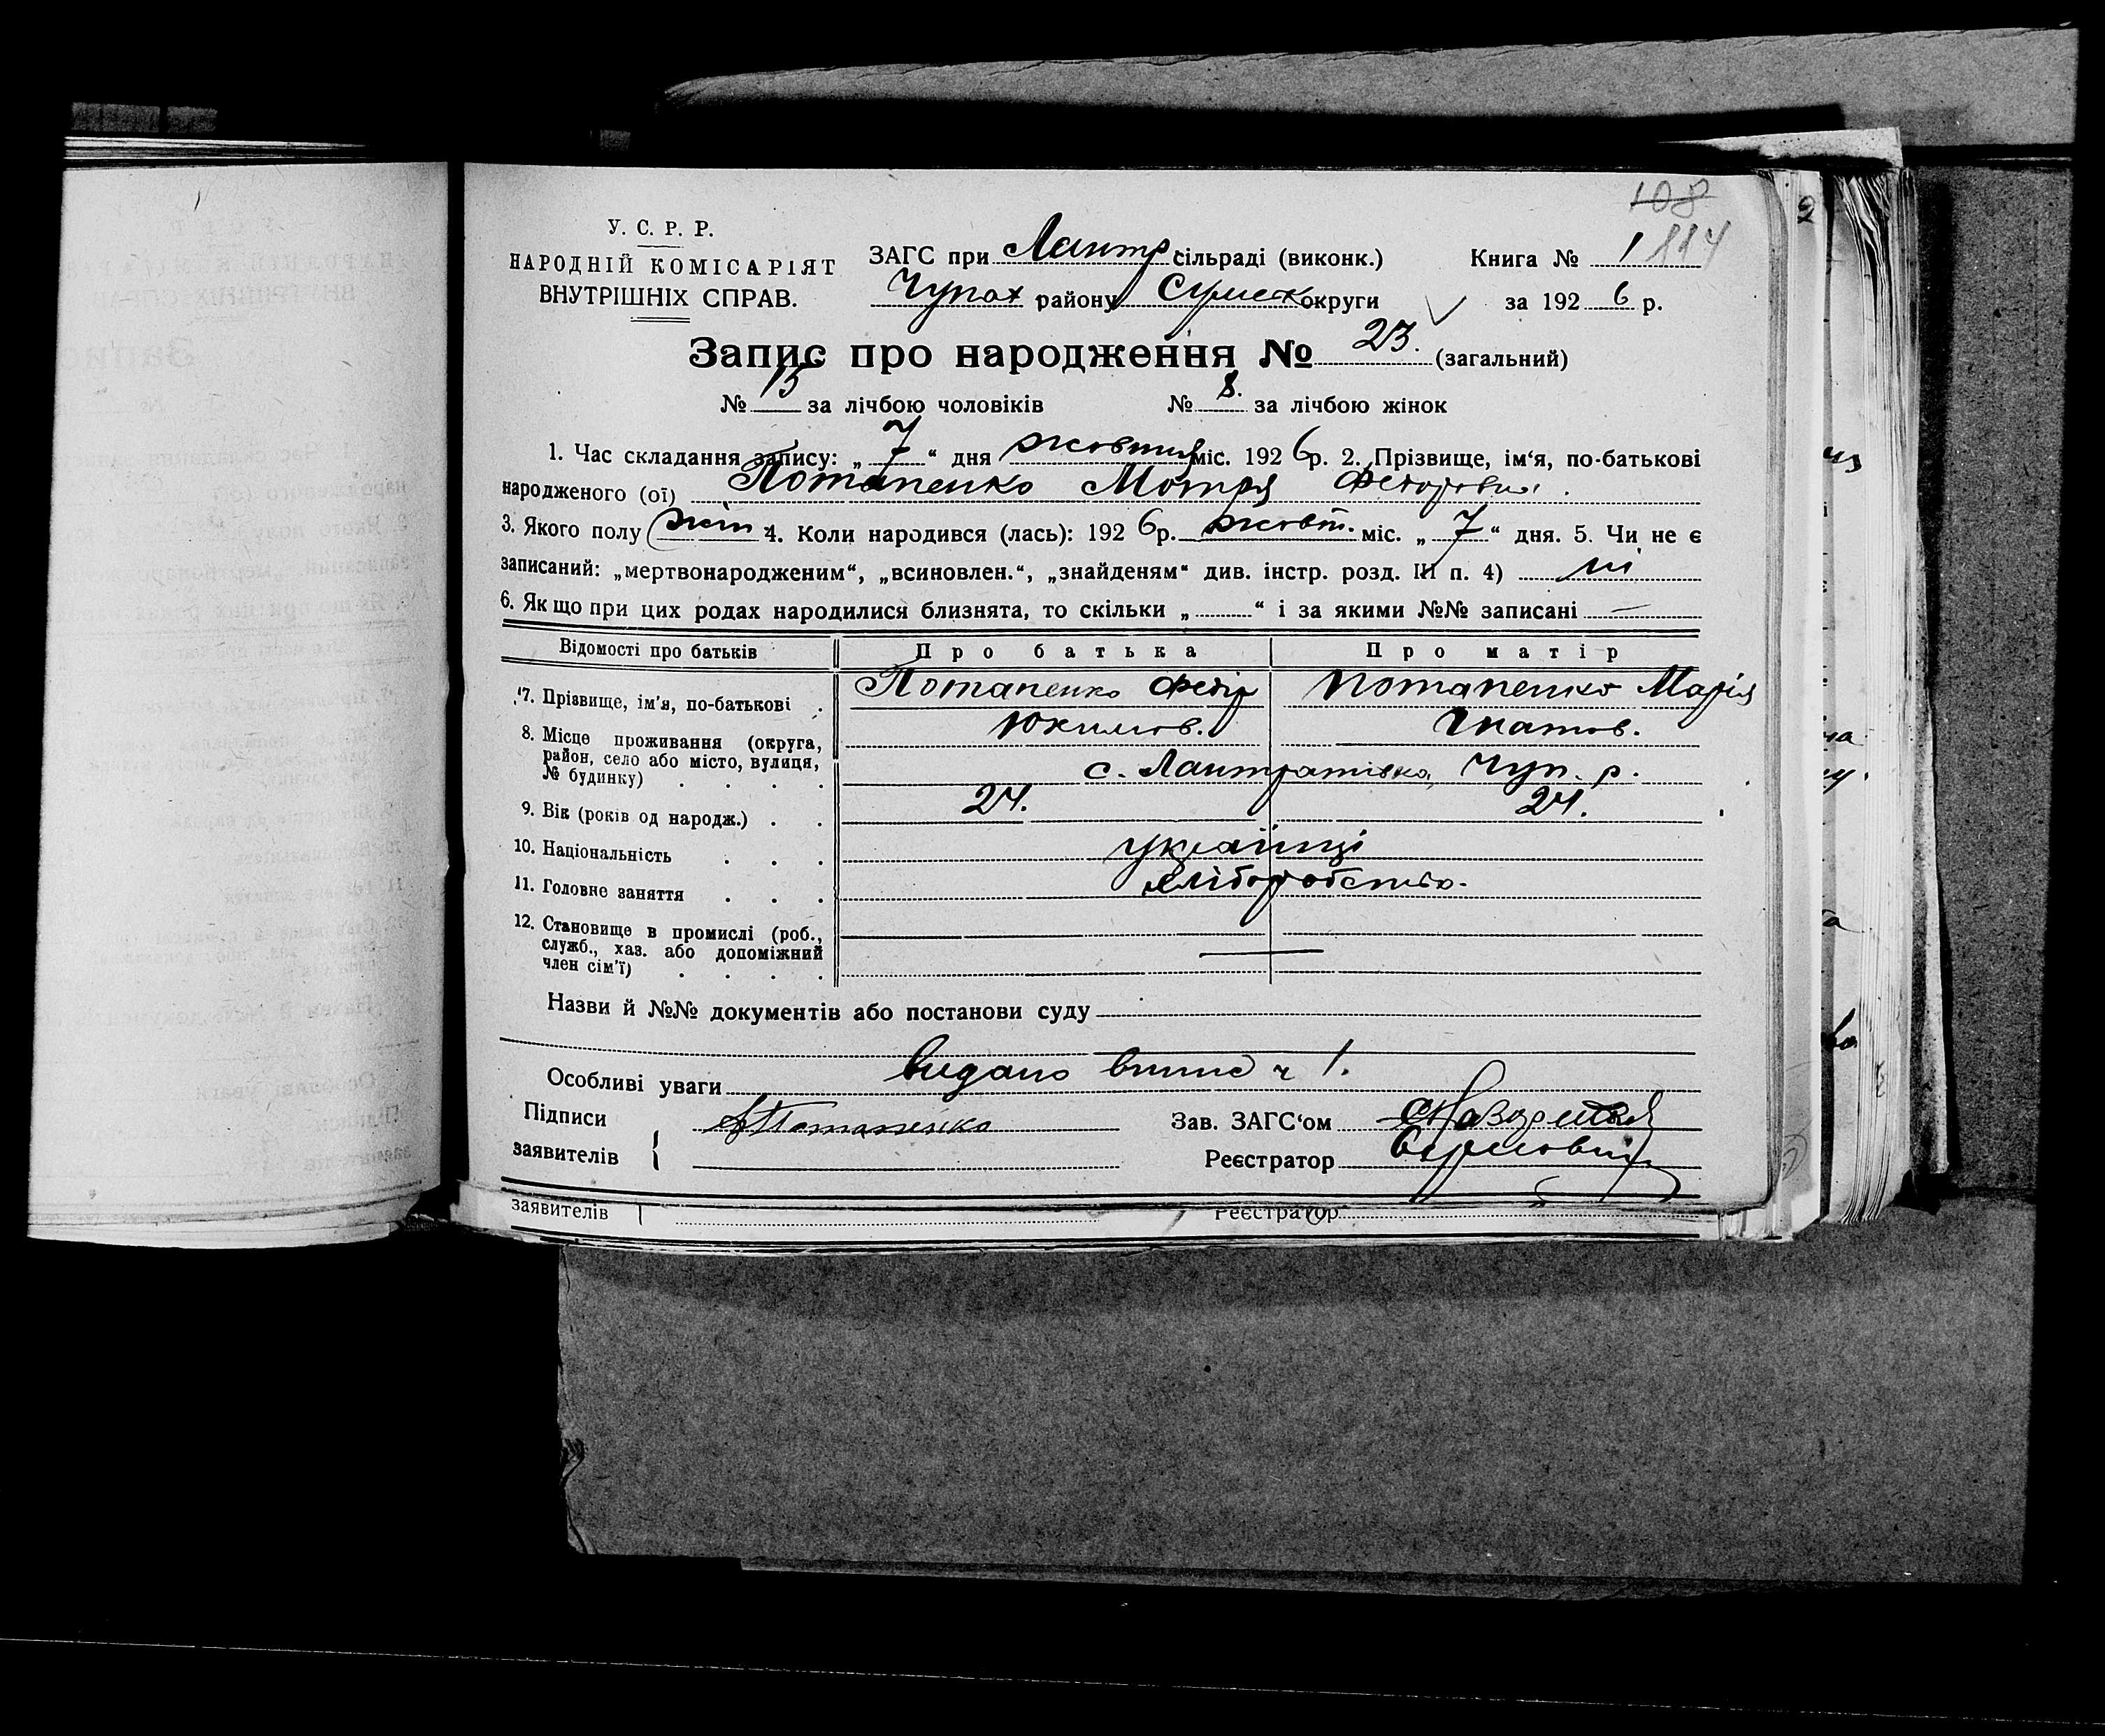 108
У. С. Р. Р.
НАРОДНІЙ КОМІСАРІЯТ
ВНУТРІШНІХ СПРАВ.
ЗАГС при Лантр. сільраді (виконк.)
Чупах району Сумськ округи
Книга № 1 114
за 192 6 р.
Запис про народження № 23. (загальний)
№ 15 за лічбою чоловіків № 8. за лічбою жінок
1. Час складання запису: „ 7 “ дня жовтня міс. 192 6 р. 2. Прізвище, ім‘я, по-батькові
народженого (ої) Потапенко Мотря Федоровна.
3. Якого полу жін. 4. Коли народився (лась): 192 6 р. жовт. міс. „ 7 “ дня. 5. Чи не є
записаний: „мертвонародженим“, „всиновлен.“, „знайденям“ див. інстр. розд. III п. 4) ні
6. Якщо при цих родах народилися близнята, то скільки „ “ і за якими №№ записані —
Відомості про батьків Про батька Про матір
7. Прізвище, ім'я, по-батькові . Потапенко Федір Потапенко Марія
Юкимов. Гнатов.
8. Місце проживання (округа,
район, село або місто, вулиця,
№ будинку) . . . . с. Лантратівка, Чуп. р.
9. Вік (років од народж.) . . 24. 24.
10. Національність . . . українці
11. Головне заняття . . . хліборобство.
12. Становище в промислі (роб.,
служб., хаз. або допоміжний
член сім'ї) . . . . —
Назви й №№ документів або постанови суду
Особливі уваги Видано випис ч 1.
Підписи
заявителів { Потапенко
Зав. ЗАГС‘ом
Реєстратор
заявителів Реєстратор